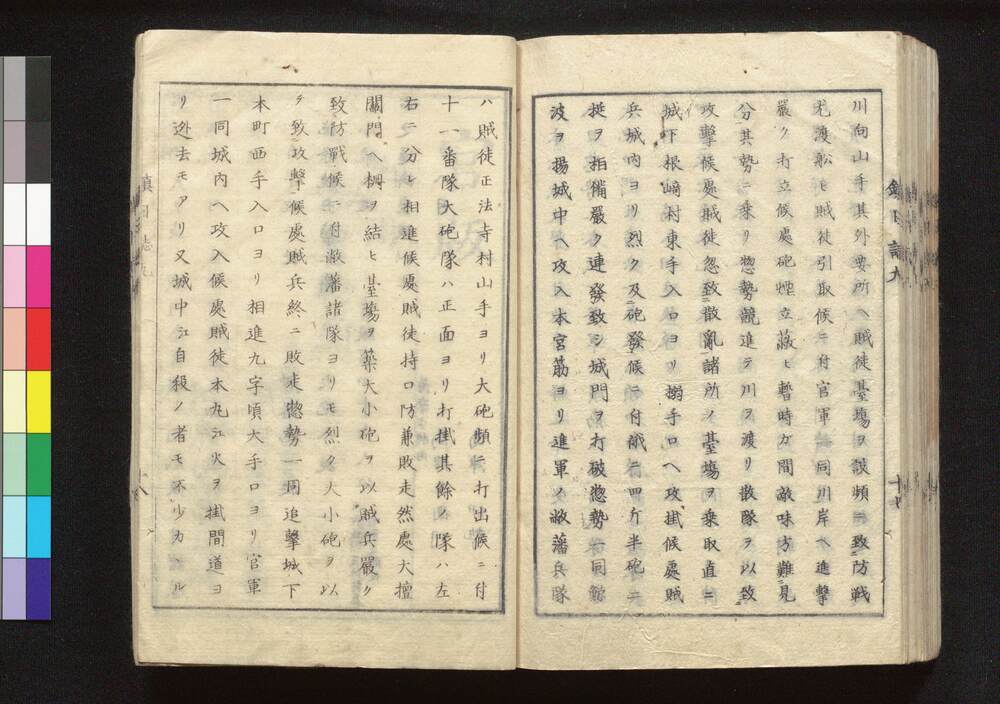 川向山手其外要所ヘ賊徒臺場ヲ設頻ニ致防戦
尤渡船ヒ賊徒引取候ニ付官軍一同川岸ヘ進撃
嚴ク打立候處砲煙立蔽ヒ暫時カ間敵味方難見
分其勢ニ乗リ惣勢競進テ川ヲ渡リ散隊ヲ以致
攻撃候處賊徒忽致散亂諸所ノ臺場ヲ乗取直ニ
城下根崎村東手入口ヨリ搦手口ヘ攻掛候處賊
兵城内ヨリ烈ク及砲發候ニ付四斤半砲二
挺ヲ相備嚴ク連發致シ城門ヲ打破惣勢一同
波ヲ揚城中ヘ攻入本宮筋ヨリ進軍ノ藩兵隊
ハ賊徒正法寺村山手ヨリ大砲頻ニ打出候ニ付
十一番隊大砲隊ハ正面ヨリ打掛其餘ノ隊ハ左
右ニ分レ相進候處賊徒持口防兼敗走然處大壇
關門ヘ柵ヲ結ヒ臺場ヲ築大小砲ヲ以賊兵嚴ク
致防戰候ニ付藩諸隊ヨリモ烈ク大小砲ヲ以
テ致攻撃候處賊兵終ニ敗走惣勢一同追撃城下
本町西手入口ヨリ相進九字頃大手口ヨリ官軍
一同城内ヘ攻入候處賊徒本丸江火ヲ掛間道ヨ
リ迯去モアリ又城中江自殺ノ者モ不少カ ル